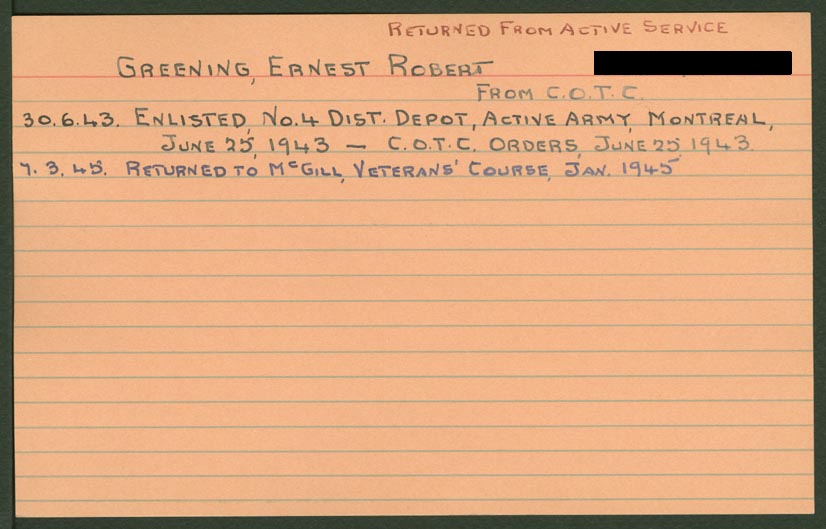 RETURNED FROM ACTIVE SERVICE
GREENING, ERNEST ROBERT
FROM C.O.T.C.
30.6.43. ENLISTED, NO.4 DIST. DEPOT, ACTIVE ARMY, MONTREAL,
JUNE 25, 1943 — C.O.T.C. ORDERS, JUNE 25, 1943.
7.3.45. RETURNED TO MCGILL, VETERANS' COURSE, JAN. 1945